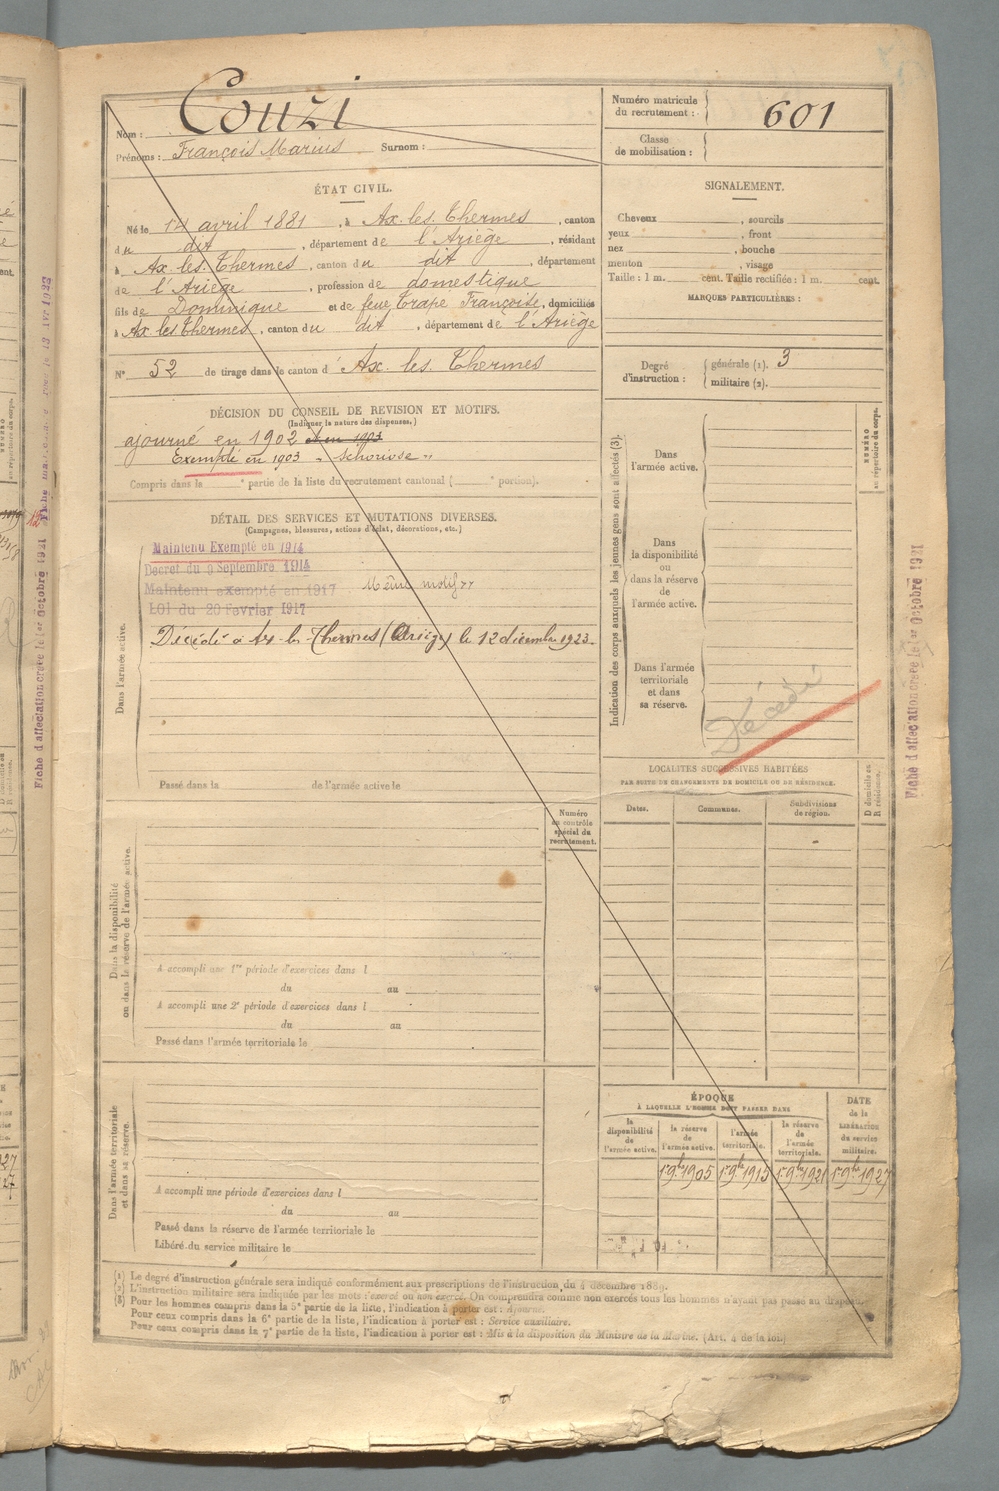 Nom : Couzi
Prénoms : François Marius Surnom :
Numéro matricule
du recrutement : 601
Classe
de mobilisation :
ÉTAT CIVIL.
Né le 14 avril 1881, à Ax. les. Thermes, canton
du dit, département de l'Ariège, résidant
à Ax. les. Thermes, canton du dit, département
de l'Ariège, profession de domestique
fils de Dominique et de feue Trape Françoise, domiciliés
à Ax les Thermes, canton du dit, département de l'Ariège
N° 52 de tirage dans le canton d' Ax. les. Thermes
SIGNALEMENT.
Cheveux , sourcils
yeux , front
nez , bouche
menton , visage
Taille : 1 m. cent. Taille rectifiée : 1 m. cent.
MARQUES PARTICULIÈRES :
Degré
d'instruction :
générale (1). 3
militaire (2).
DÉCISION DU CONSEIL DE REVISION ET MOTIFS.
(Indiquer la nature des dispenses.)
ajourné en 1902 et en 1903
Exempté en 1903
Compris dans la e partie de la liste du recrutement cantonal ( e portion).
DÉTAIL DES SERVICES ET MUTATIONS DIVERSES.
(Campagnes, blessures, actions d'éclat, décorations, etc.)
Maintenu Exempté en 1914
Décret du 9 Septembre 1914
Maintenu exempté en 1917 Même motif
LOI du 20 Fevrier 1917
Décédé à Ax-les-Thermes (Ariège) le 12 décembre 1923.
Dans l'armée active.
Passé dans la de l'armée active le
Indication des corps auxquels les jeunes gens sont affectés (3).
NUMÉRO
au répertoire du corps.
Dans
l'armée active.
Dans
la disponibilité
ou
dans la réserve
de
l'armée active.
Dans l'armée
territoriale
et dans
sa réserve.
Décédé
Fiche d'affectation créée le 1er Octobre 1921
Fiche d'affectation créée le 1er Octobre 1921
LOCALITÉS SUCCESSIVES HABITÉES
PAR SUITE DE CHANGEMENTS DE DOMICILE OU DE RÉSIDENCE.
Dates.
Communes.
Subdivisions
de région.
D domicile ou
R résidence.
Numéro
au contrôle
spécial du
recrutement.
Dans la disponibilité
ou dans la réserve de l'armée active.
A accompli une 1re période d'exercices dans l
du au
A accompli une 2e période d'exercices dans l
du au
Passé dans l'armée territoriale le
Dans l'armée territoriale
et dans sa réserve.
A accompli une période d'exercices dans l
du au
Passé dans la réserve de l'armée territoriale le
Libéré du service militaire le
ÉPOQUE
À LAQUELLE L'HOMME DOIT PASSER DANS
la
disponibilité
de
l'armée active.
la réserve
de
l'armée active.
l'armée
territoriale.
la réserve
de
l'armée
territoriale.
DATE
de la
LIBÉRATION
du service
militaire.
1er 9bre 1905 1er 9bre 1915 1er 9bre 1921 1er 9bre 1927
(1) Le degré d'instruction générale sera indiqué conformément aux prescriptions de l'instruction du 4 décembre 1889.
(2) L'instruction militaire sera indiquée par les mots : exercé ou non exercé. On comprendra comme non exercés tous les hommes n'ayant pas passé au drapeau.
(3) Pour les hommes compris dans la 5e partie de la liste, l'indication à porter est : Ajourné.
Pour ceux compris dans la 6e partie de la liste, l'indication à porter est : Service auxiliaire.
Pour ceux compris dans la 7e partie de la liste, l'indication à porter est : Mis à la disposition du Ministre de la Marine. (Art. 4 de la loi)